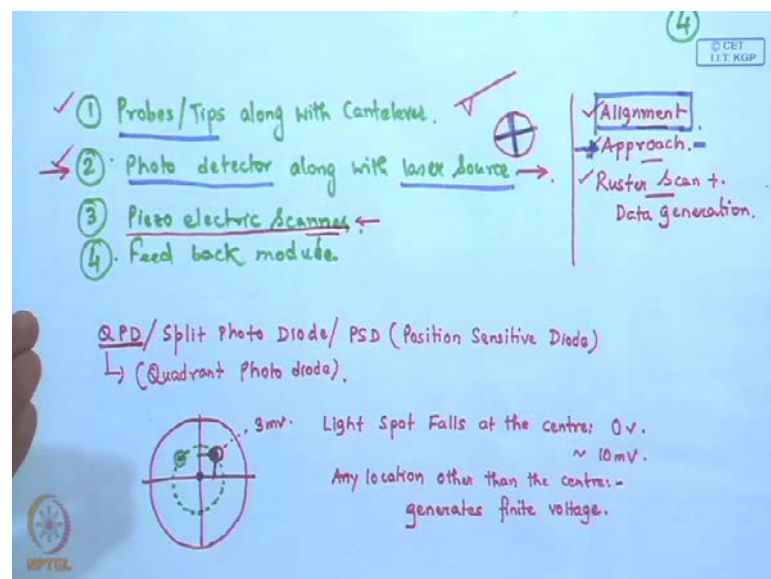 4
© CET
I.I.T. KGP
① Probes/Tips along with Cantelever.
② Photo detector along with laser Source
③ Piezo electric Scanner
④ Feed back module.
Alignment.
Approach.
Ruster Scan +
Data generation.
QPD/ Split Photo Diode/ PSD (Position Sensitive Diode)
(Quadrant Photo diode).
3mv.
Light Spot Falls at the centre: 0v.
~ 10mV.
Any location other than the centre:-
generates finite voltage.
NPTEL